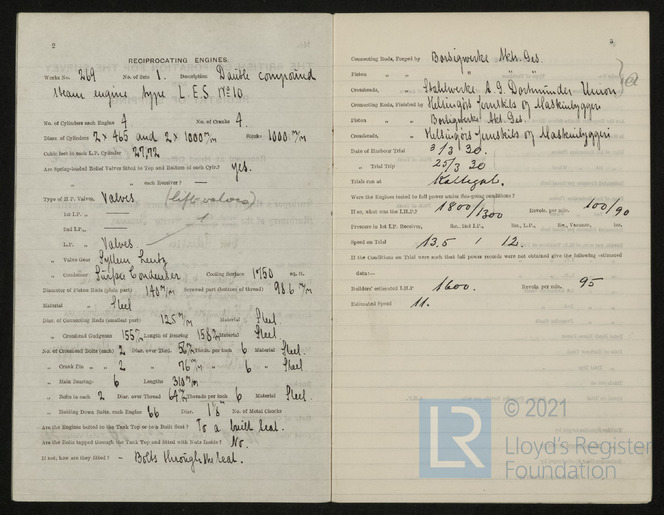 2
RECIPROCATING ENGINES.
Works No. 269 No. of Sets 1. Description Double compound
steam engine, type L.E.S. No 10.
No. of Cylinders each Engine 4 No. of Cranks 4.
Diars. of Cylinders 2 × 465 and 2 × 1000 m/m Stroke 1000 m/m
Cubic feet in each L.P. Cylinder 27,72
Are Spring-loaded Relief Valves fitted to Top and Bottom of each Cylr.? Yes.
„ „ each Receiver? —
Type of H.P. Valves, Valves (lift valves)
1st I.P. „
2nd I.P. „
L.P. „ Valves
„ Valve Gear System Lentz
„ Condenser Surface Condenser Cooling Surface 1750 sq. ft.
Diameter of Piston Rods (plain part) 140 m/m Screwed part (bottom of thread) m/m
Material „ Steel
Diar. of Connecting Rods (smallest part) 125 m/m Material Steel.
„ Crosshead Gudgeons 155 m/m Length of Bearing 158 m/m Material Steel
No. of Crosshead Bolts (each) 2 Diar. over Thrd. 56 m/m Thrds. per inch 6 Material Steel.
„ Crank Pin „ „ 2 „ 76 m/m „ 6 „ Steel.
„ Main Bearings 6 Lengths 310 m/m
„ Bolts in each 2 Diar. over Thread 64 m/m Threads per inch 6 Material Steel.
„ Holding Down Bolts, each Engine 66 Diar. 1 No. of Metal Chocks
Are the Engines bolted to the Tank Top or to a Built Seat? To a built seat.
Are the Bolts tapped through the Tank Top and fitted with Nuts Inside? No.
If not, how are they fitted? – Bolts through the seat.
Connecting Rods, Forged by Borsigwerke Akt. Ges.
Piston „ „ „ „
Crossheads, „ Stahlwerke A.G. Dortmunder Union
Connecting Rods, Finished by Helsingörs Jernskibs og Maskinbyggeri
Piston „ „ Borsigwerke Akt. Ges.
Crossheads, „ Helsingörs Jernskibs og Maskinbyggeri
Date of Harbour Trial 3/3 30.
„ Trial Trip 25/3 30
Trials run at Kattegat.
Were the Engines tested to full power under Sea-going conditions?
If so, what was the I.H.P.? 1800/1300 Revols. per min. 100/90
Pressure in 1st I.P. Receiver, lbs., 2nd I.P., lbs., L.P., lbs., Vacuum, ins.
Speed on Trial 13,5 / 12.
If the Conditions on Trial were such that full power records were not obtained give the following estimated
data:—
Builders' estimated I.H.P. 1600. Revols. per min. 95
Estimated Speed 11.
LR
© 2021
Lloyd's Register
Foundation